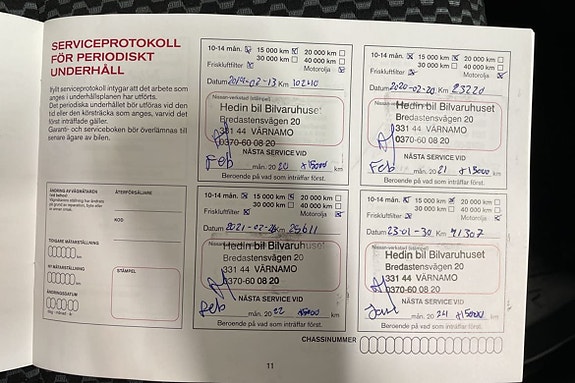 SERVICEPROTOKOLL
FÖR PERIODISKT
UNDERHÅLL
Ifyllt serviceprotokoll intygar att det arbete som
anges i underhållsplanen har utförts.
Det periodiska underhållet bör utföras vid den
tid eller den körsträcka som anges, varvid det
först inträffade gäller.
Garanti- och serviceboken bör överlämnas till
senare ägare av bilen.
ÄNDRING AV VÄGMÄTAREN
ÅTERFÖRSÄLJARE
KOD
TIDIGARE MÄTARSTÄLLNING
km
NY MÄTARSTÄLLNING
km
ÄNDRINGSDATUM
STÄMPEL
10-14 mån. 15 000 km 20 000 km
30 000 km 40 000 km
Friskluftfilter Motorolja
Datum 2019-02-13 Km 10210
Hedin bil Bilvaruhuset
Bredastensvägen 20
331 44 VÄRNAMO
0370-60 08 20
NÄSTA SERVICE VID
Feb mån. 20 20 +15000 km
Beroende på vad som inträffar först.
10-14 mån. 15 000 km 20 000 km
30 000 km 40 000 km
Friskluftfilter Motorolja
Datum 2020-02-20 Km 23220
Nissan-verkstad (stämpel)
Hedin bil Bilvaruhuset
Bredastensvägen 20
331 44 VÄRNAMO
0370-60 08 20
NÄSTA SERVICE VID
Feb mån. 20 21 +15000 km
Beroende på vad som inträffar först.
10-14 mån. 15 000 km 20 000 km
30 000 km 40 000 km
Friskluftfilter Motorolja
Datum 2021-02-26 Km 29611
Hedin bil Bilvaruhuset
Bredastensvägen 20
331 44 VÄRNAMO
0370-60 08 20
NÄSTA SERVICE VID
Feb mån. 20 22 km
Beroende på vad som inträffar först.
10-14 mån. 15 000 km 20 000 km
30 000 km 40 000 km
Friskluftfilter Motorolja
Datum 23-01-30 Km 41307
Nissan-verkstad (stämpel)
Hedin bil Bilvaruhuset
Bredastensvägen 20
331 44 VÄRNAMO
0370-60 08 20
NÄSTA SERVICE VID
mån. 20 24 +15000 km
Beroende på vad som inträffar först.
CHASSINUMMER
11